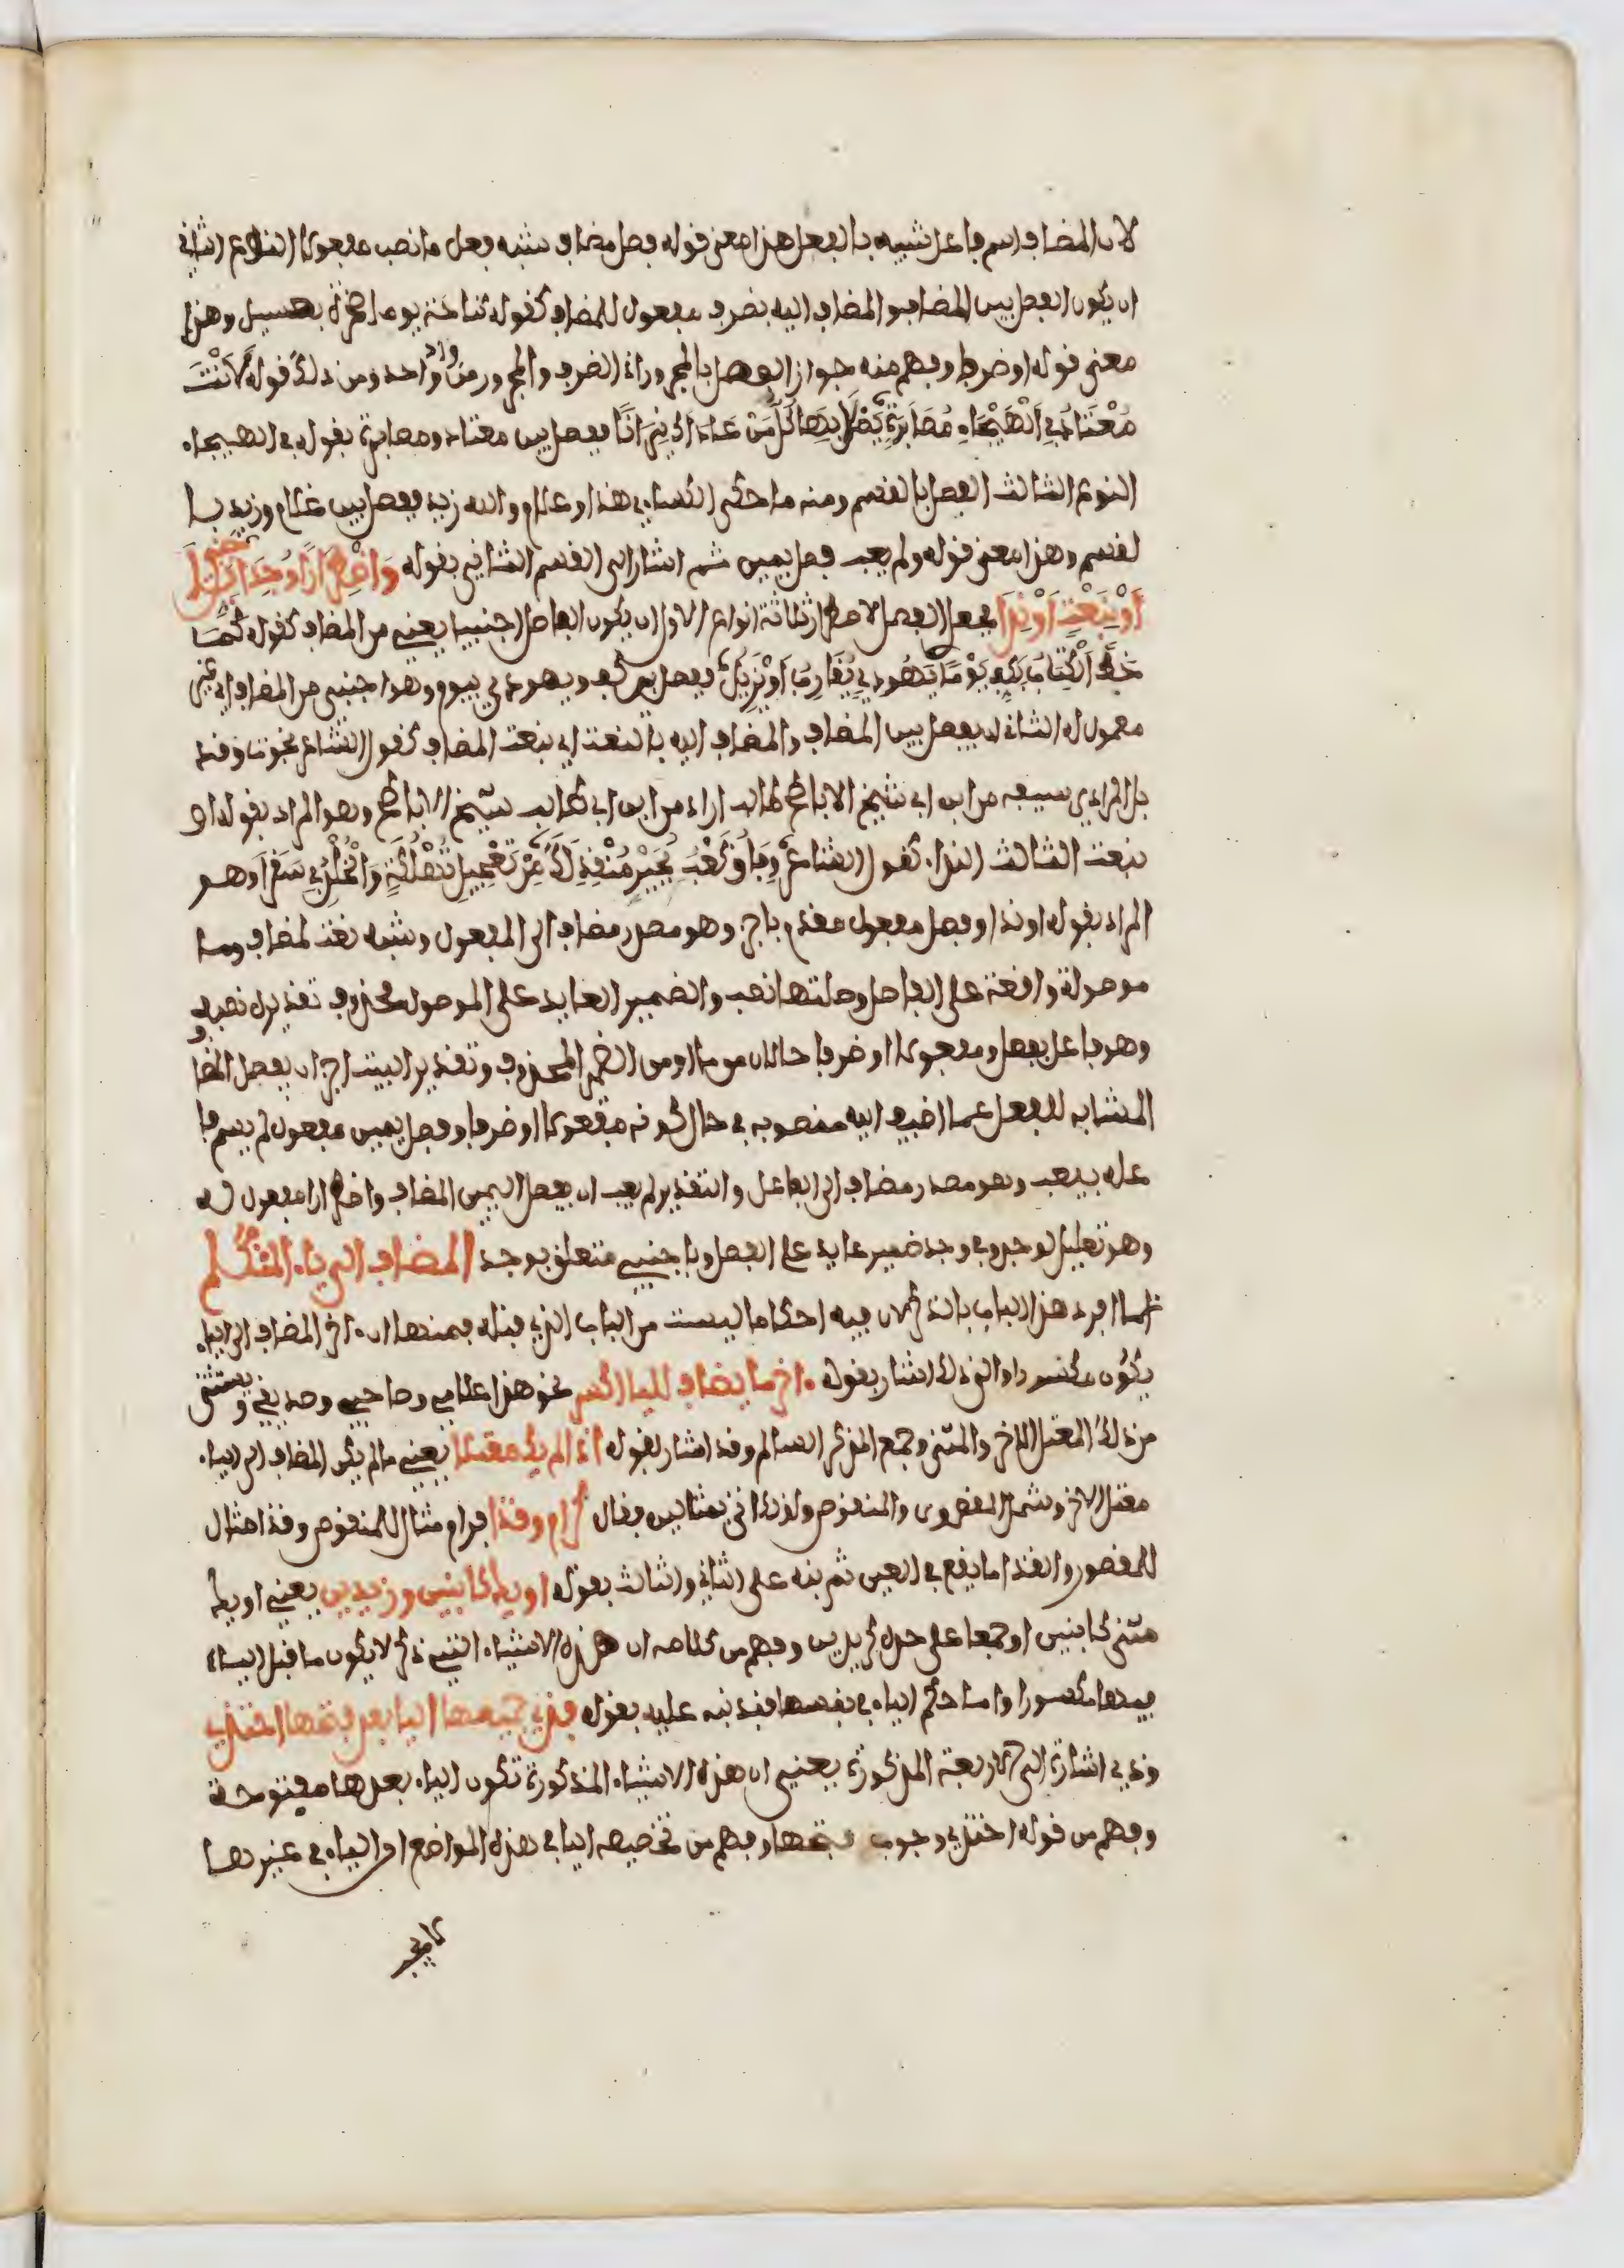 لان المضاف اسم فاعل شبيه بالفعل هذا معنى قوله فصل مضاف شبه فعل ما نصب مفعولا النوع الثاني
ان يكون الفصل بين المضاف والمضاف اليه بضرف مفعول للمضاف كقوله كناحت يوما صخرة بعسيل وهذا
معنى قوله او ضرفا وفهم منه جواز الفصل بالمجرور اذ الضرف والمجرور من واد واحد ومن ذلك قوله لَأَنْتَ
مُعْتَادُ فِي الْهَيْجَاءِ مُصَابَرَةٍ يَصْلَى بِهَا كُلُّ مَنْ عَادَاكَ نِيرَانًا ففصل بين معتاد ومصابرة بقوله في الهيجاء
النوع الثالث الفصل بالقسم ومنه ما حكى الكساءي هذا غلام والله زيد ففصل بين غلام وزيد با
لقسم وهذا معنى قوله ولم يعب فصل يمين ثم اشار الى القسم الثاني بقوله وَاضْطِرَارًا وُجِدَا بِأَجْنَبِي
أَوْ بِنَعْتٍ أَوْ نِدَا فجعل الفصل لاضطرار ثلاثة انواع الاول ان يكون الفاصل اجنبيا يعني من المضاف كقوله كَمَا
خُطَّ الْكِتَابُ بِكَفِّ يَوْمًا يَهُودِيٍّ يُقَارِبُ أَوْ يُزِيلُ ففصل بين كف ويهودي بيوم وهو اجنبي من المضاف اي غير
معمول له الثاني ان يفصل بين المضاف والمضاف اليه بالنعت اي بنعت المضاف كقول الشاعر نجوت وقد
بل المرادي سيفه من ابن ابي شيخ الاباطح طالب اراد من ابن ابي طالب شيخ الاباطح وهو المراد بقوله او
بنعت الثالث النداء كقول الشاعر وِفَاقُ كَعْبُ بُجَيْرٍ مُنْقِذٌ لَكَ مِنْ تَعْجِيلِ تَهْلُكَةٍ وَالْخُلْدِ فِي سَقَرَا وهو
المراد بقوله او ندا وفصل مفعول مقدم باجز وهو مصدر مضاف الى المفعول وشبه نعت لمضاف وما
موصولة واقعة على الفاصل وصلتها نصب والضمير العايد على الموصول محذوف تقديره نصبه
وهو فاعل بفصل ومفعولا او ضرفا حالان من ما او من الضمير المحذوف وتقدير البيت اجز ان يفصل المضا
المشابه للفعل عما اضيف اليه منصوبه في حال كونه مفعولا او ضرفا وفصل يمين مفعول لم يسم فا
عله بيعب وهو مصدر مضاف الى الفاعل والتقدير لم يعب ان يفصل اليمين المضاف واضطرارا مفعول له
وهو تعليل لوجد وفي وجد ضمير عايد على الفصل وباجنبي متعلق بوجد المضاف الى ياء المتكلم
انما افرد هذا الباب بالذكر لان فيه احكاما ليست من الباب الذي قبله فمنها ان ءاخر المضاف الى الياء
يكون مكسورا والى ذلك اشار بقوله ءاخر ما يضاف لليا اكسر نحو هذا غلامي وصاحبي وصديقي ويستثنى
من ذلك المعتل الاخر والمثنى وجمع المذكر السالم وقد اشار لقوله اذا لم يك معتلا يعني ما لم يكن المضاف الى الياء
معتل الاخر وشمل المقصور والمنقوص ولذلك اتى بمثالين فقال كرام وقذا فرام مثال للمنقوص وقذا مثال
للمقصور والقذا ما يقع في العين ثم نبه على الثاني والثالث بقوله او يك كابنين وزيدين يعني او يك
مثنى كابنين او جمعا على حده كزيدين وفهم من كلامه ان هذه الاشياء التي ذكر لا يكون ما قبل الياء
فيها مكسورا واما حكم الياء في نفسها فقد نبه عليه بقوله فذي جميعها اليا بعد فتحها احتذي
وذي اشارة الى الاربعة المذكورة يعني ان هذه الاشياء المذكورة تكون الياء بعدها مفتوحة
وفهم من قوله احتذي وجوب فتحها وفهم من تخصيصه اليا في هذه المواضع ان الياء في غيرها